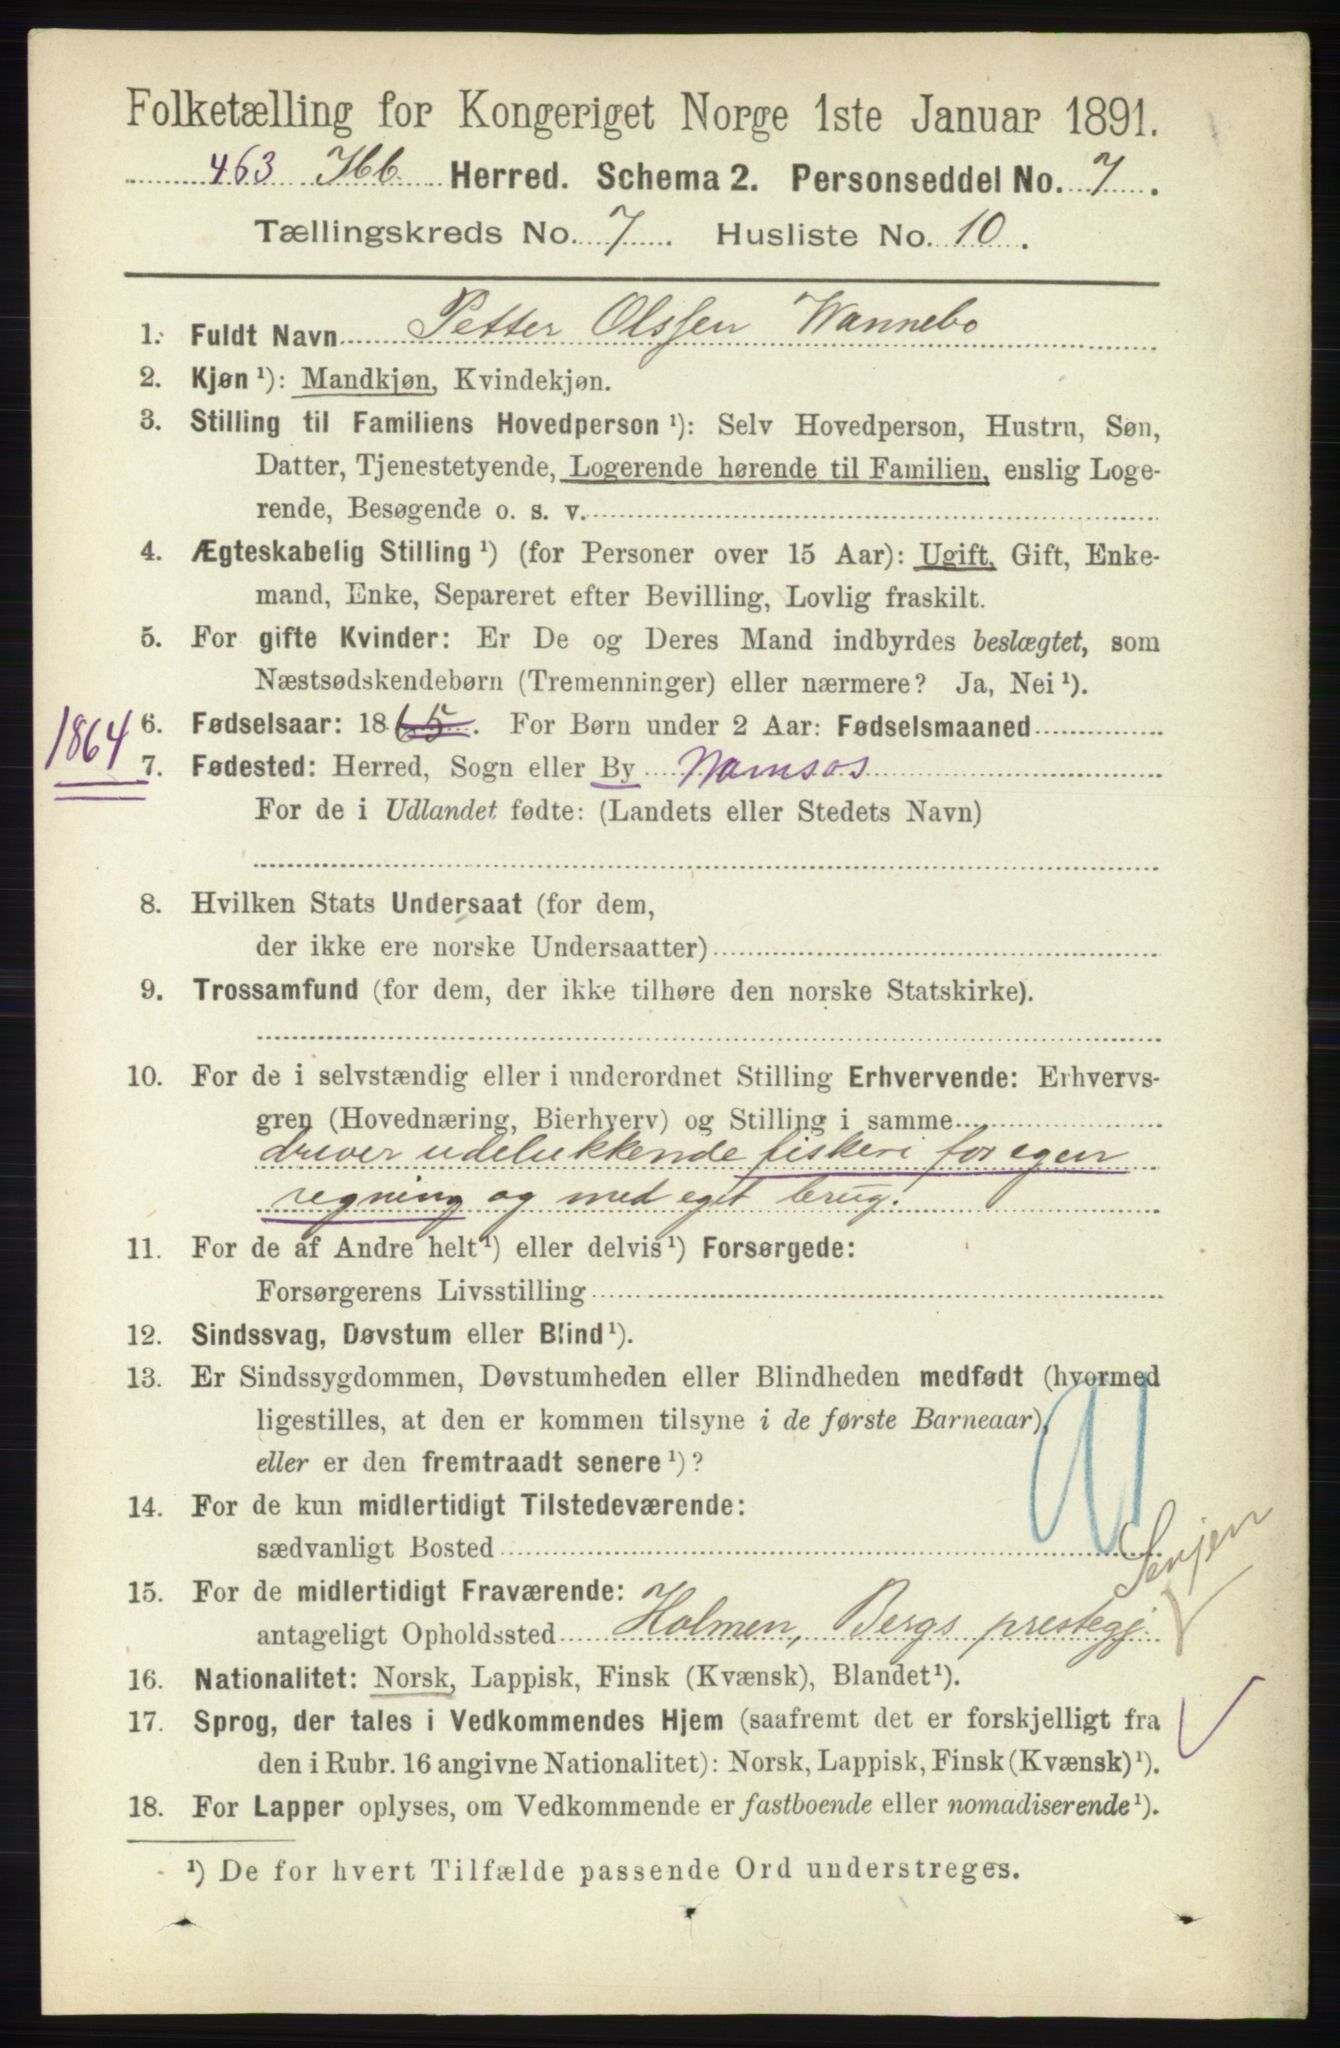 Folketælling for Kongeriget Norge 1ste Januar 1891.
463 Ibb Herred. Schema 2. Personseddel No. 7.
Tællingskreds No. 7. Husliste No. 10.
1. Fuldt Navn Petter Olssen Wannebo
2. Kjøn ¹): Mandkjøn, Kvindekjøn.
3. Stilling til Familiens Hovedperson ¹): Selv Hovedperson, Hustru, Søn,
Datter, Tjenestetyende, Logerende hørende til Familien, enslig Loge-
rende, Besøgende o. s. v.
4. Ægteskabelig Stilling ¹) (for Personer over 15 Aar): Ugift, Gift, Enke-
mand, Enke, Separeret efter Bevilling, Lovlig fraskilt.
5. For gifte Kvinder: Er De og Deres Mand indbyrdes beslægtet, som
Næstsødskendebørn (Tremenninger) eller nærmere? Ja, Nei ¹).
1864
6. Fødselsaar: 1865. For Børn under 2 Aar: Fødselsmaaned
7. Fødested: Herred, Sogn eller By Namsos
For de i Udlandet fødte: (Landets eller Stedets Navn)
8. Hvilken Stats Undersaat (for dem,
der ikke ere norske Undersaatter)
9. Trossamfund (for dem, der ikke tilhøre den norske Statskirke).
10. For de i selvstændig eller i underordnet Stilling Erhvervende: Erhvervs-
gren (Hovednæring, Bierhverv) og Stilling i samme
driver udelukkende fiskeri for egen
regning og med eget brug.
11. For de af Andre helt ¹) eller delvis ¹) Forsørgede:
Forsørgerens Livsstilling
12. Sindssvag, Døvstum eller Blind ¹).
13. Er Sindssygdommen, Døvstumheden eller Blindheden medfødt (hvormed
ligestilles, at den er kommen tilsyne i de første Barneaar),
eller er den fremtraadt senere ¹)?
14. For de kun midlertidigt Tilstedeværende:
sædvanligt Bosted
Senjen
15. For de midlertidigt Fraværende:
antageligt Opholdssted Holmen, Bergs prestegj.
16. Nationalitet: Norsk, Lappisk, Finsk (Kvænsk), Blandet ¹).
17. Sprog, der tales i Vedkommendes Hjem (saafremt det er forskjelligt fra
den i Rubr. 16 angivne Nationalitet): Norsk, Lappisk, Finsk (Kvænsk) ¹).
18. For Lapper oplyses, om Vedkommende er fastboende eller nomadiserende ¹).
¹) De for hvert Tilfælde passende Ord understreges.